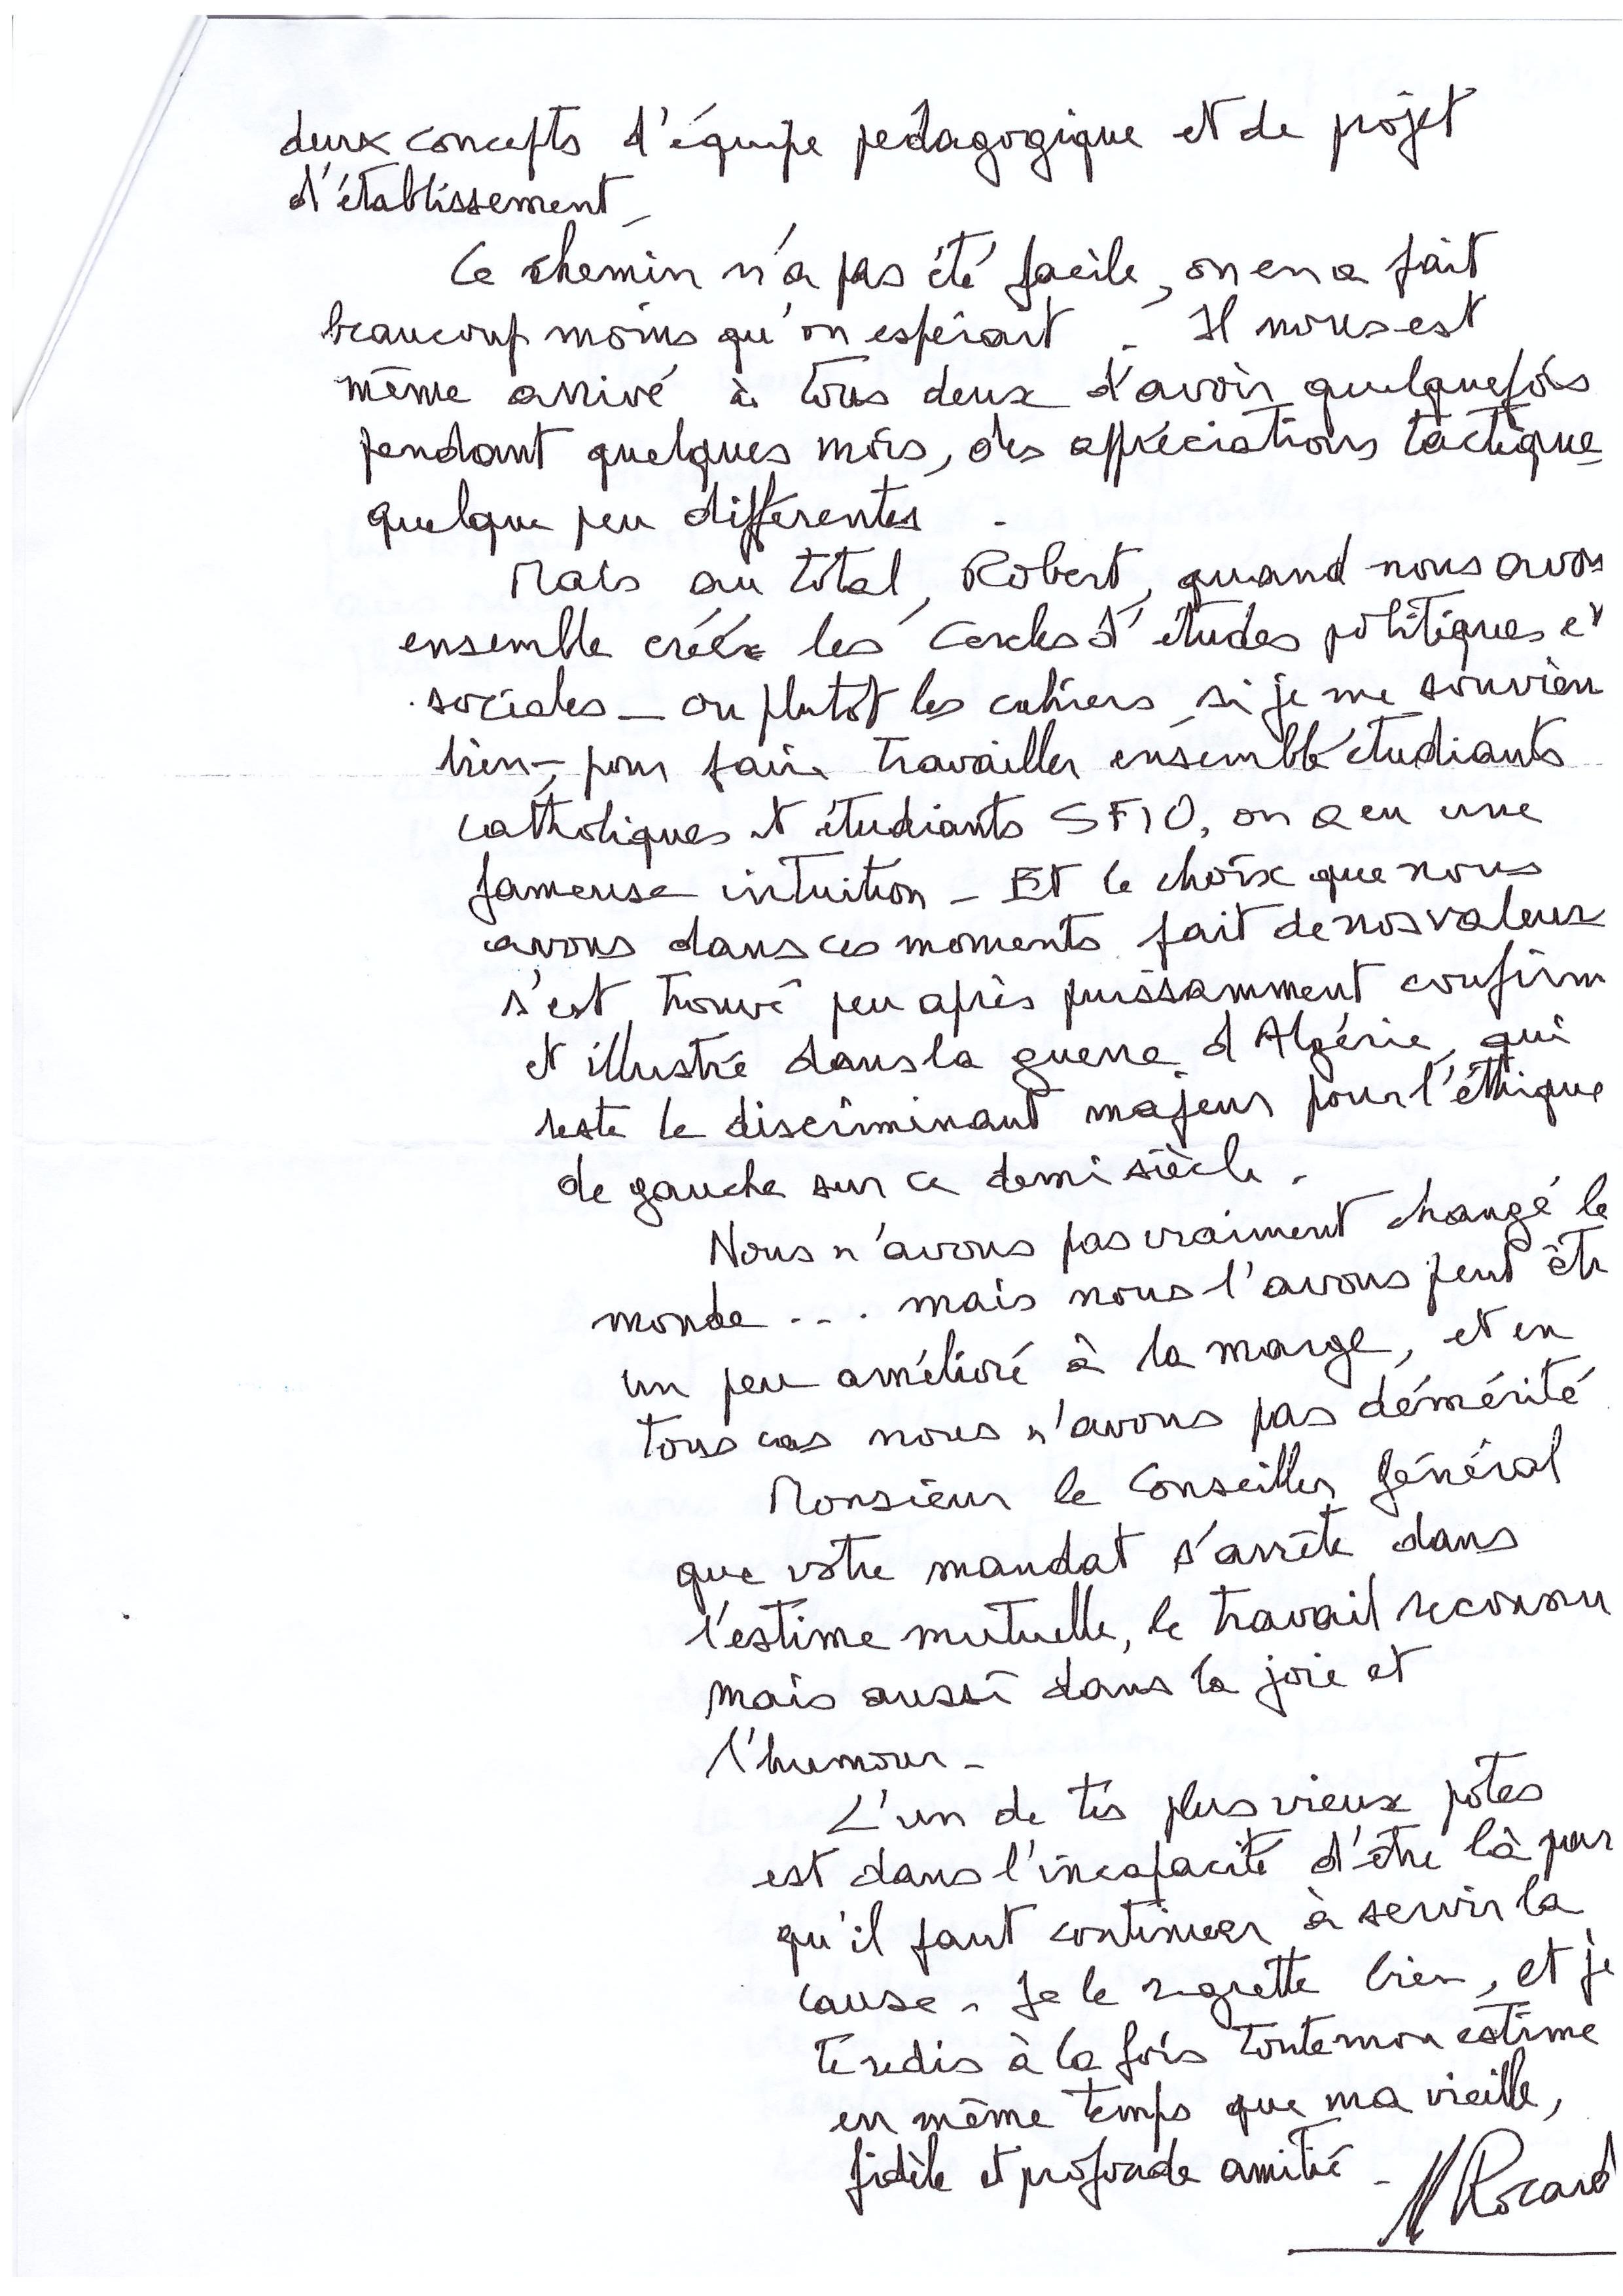 deux concepts d'équipe pédagogique et de projet
d'établissement_
Le chemin n'a pas été facile, on en a fait
beaucoup moins qu'on espérait. Il nous est
même arrivé à tous deux d'avoir quelquefois
pendant quelques mois, des appréciations tactique
quelque peu différentes.
Mais au total, Robert, quand nous avons
ensemble créé les Cercles d'études politiques et
sociales _ ou plutôt les cahiers, si je me souvien
bien _, pour faire travailler ensemble étudiants
catholiques et étudiants SFIO, on a eu une
fameuse intuition _ Et le choix que nous
avons dans ces moments fait de nos valeurs
s'est trouvé peu après puissamment confirm
et illustré dans la guerre d'Algérie, qui
reste le discriminant majeur pour l'éthique
de gauche sur ce demi siècle.
Nous n'avons pas vraiment changé le
monde ... mais nous l'avons peut êtr
un peu amélioré à la marge, et en
tous cas nous n'avons pas démérité
Monsieur le Conseiller Général
que votre mandat s'arrête dans
l'estime mutuelle, le travail reconnu
mais aussi dans la joie et
l'humour _
L'un de tes plus vieux potes
est dans l'incapacité d'être là par
qu'il faut continuer à servir la
cause. Je le regrette bien, et je
te redis à la fois toute mon estime
en même temps que ma vieille,
fidèle et profonde amitié _ M Rocard